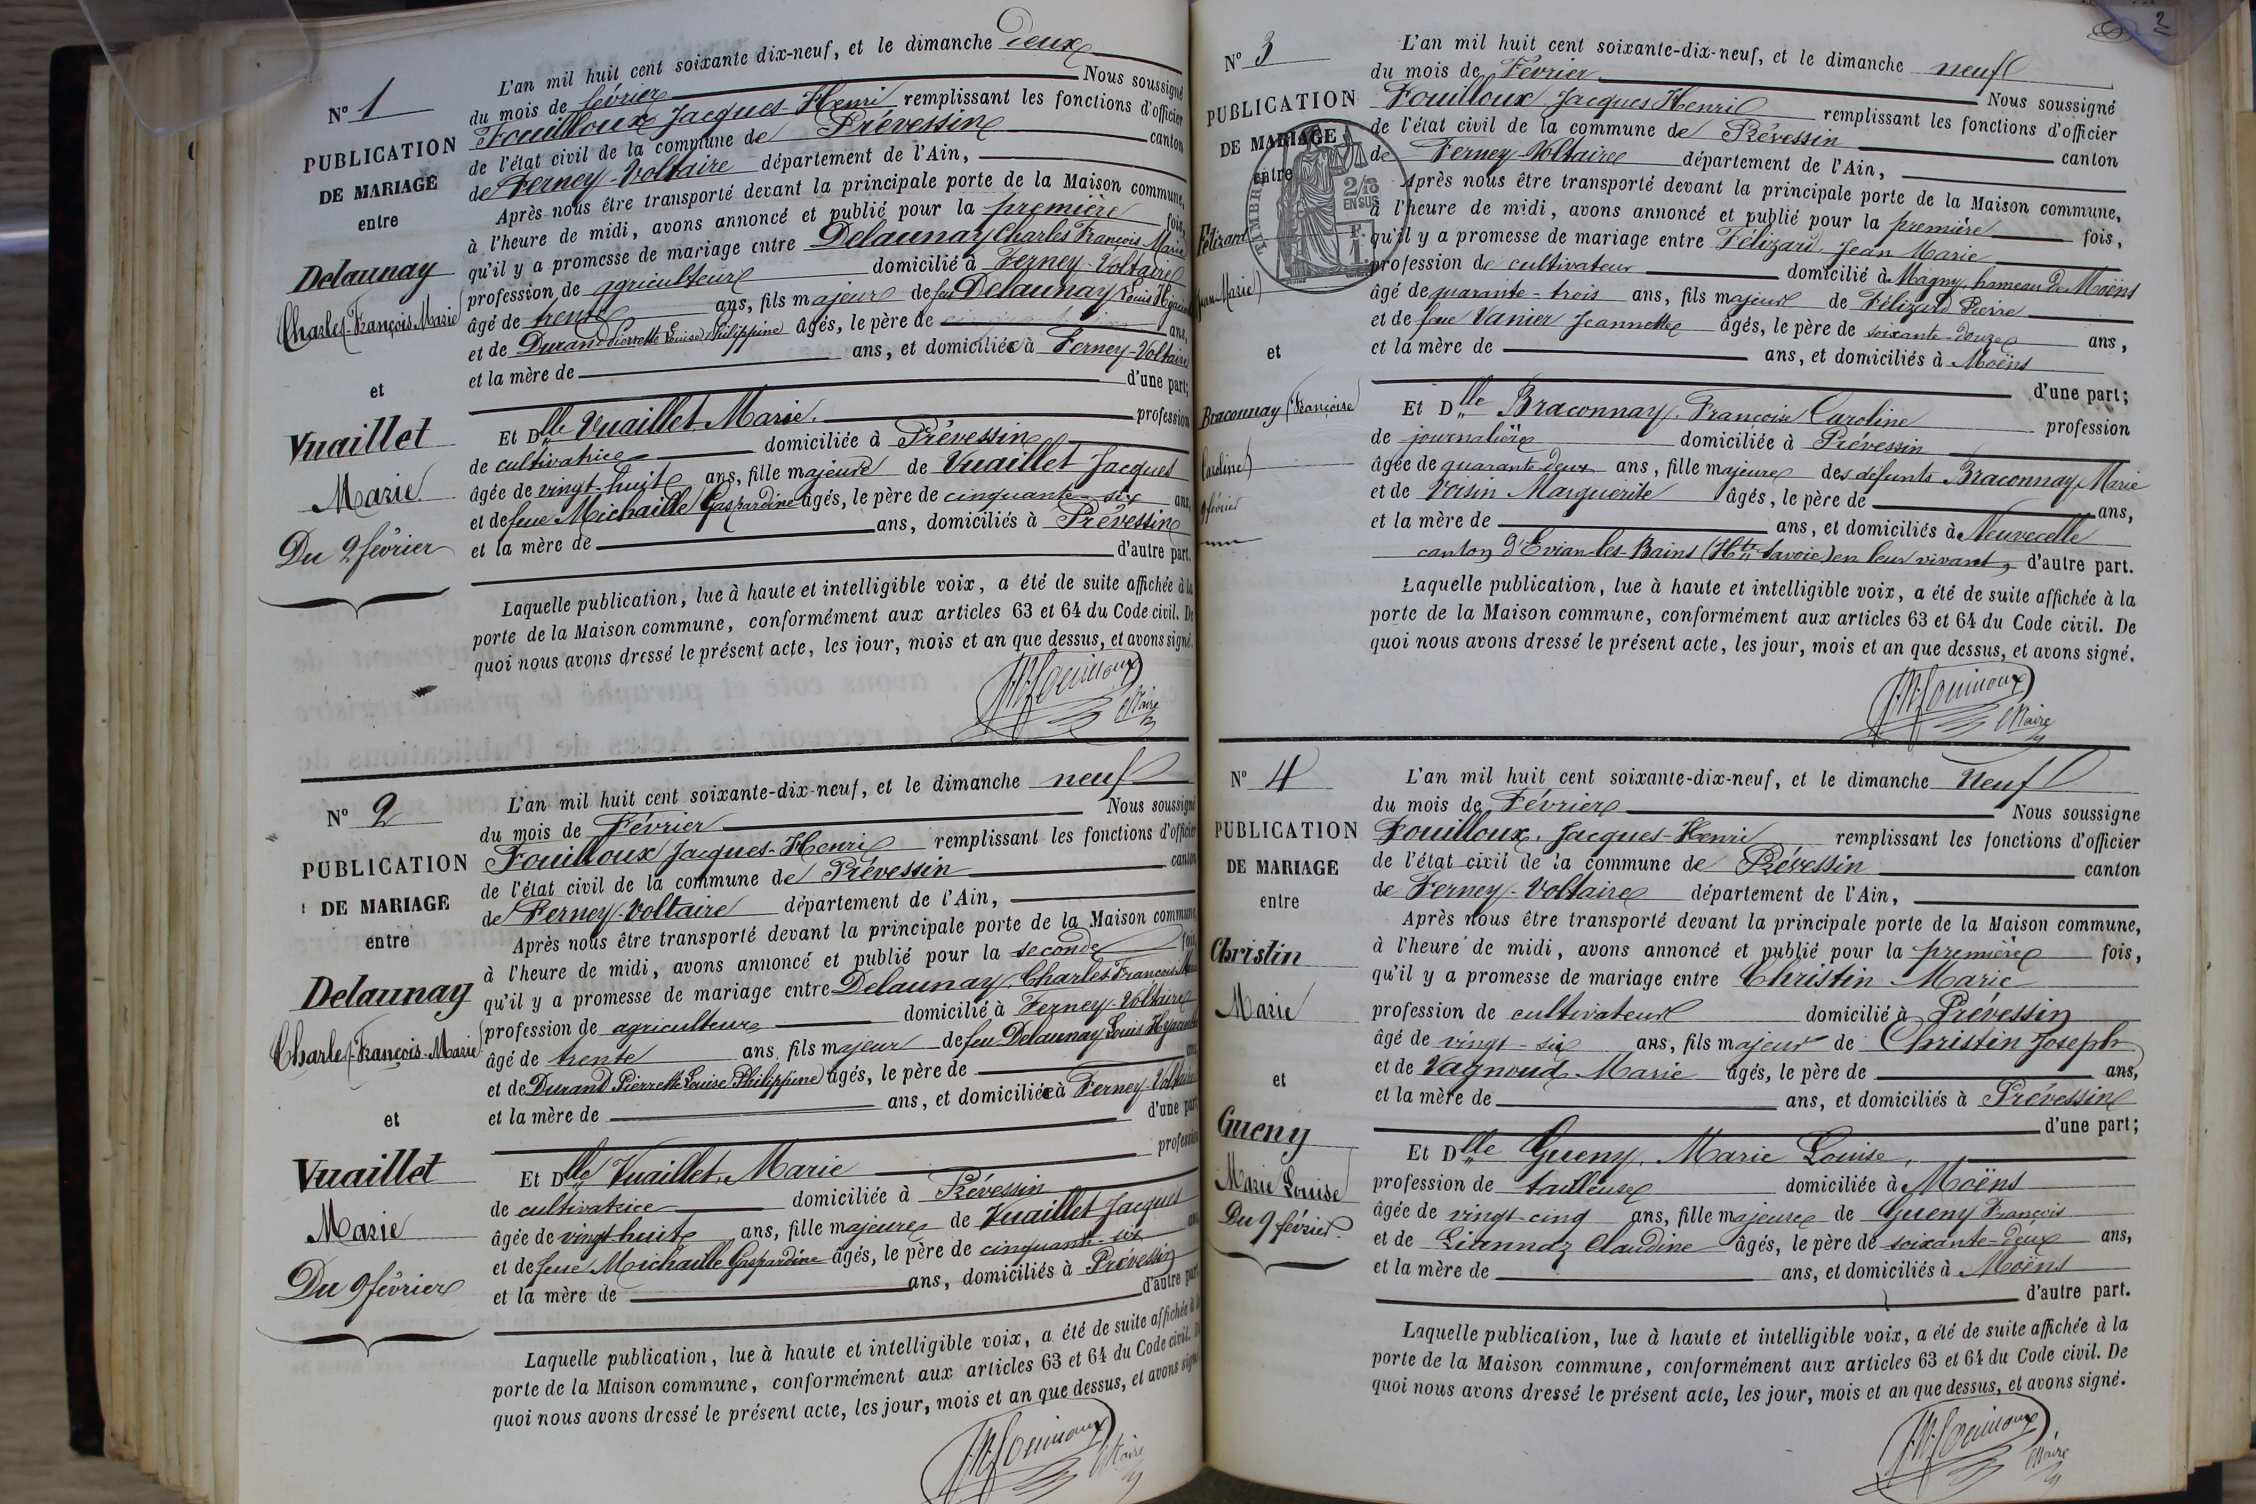 N° 1
PUBLICATION
DE MARIAGE
entre
Delaunay
Charles-François-Marie
et
Vuaillet
Marie
Du 2 février
L'an mil huit cent soixante dix-neuf, et le dimanche deux
du mois de février Nous soussigné
Fouilloux Jacques-Henri remplissant les fonctions d'officier
de l'état civil de la commune de Prévessin canton
de Ferney-Voltaire département de l'Ain,
Après nous être transporté devant la principale porte de la Maison commune,
à l'heure de midi, avons annoncé et publié pour la première fois,
qu'il y a promesse de mariage entre Delaunay Charles François Marie
profession de agriculteur domicilié à Ferney-Voltaire
âgé de trente ans, fils majeur de feu Delaunay Louis
et de Durand Pierrette Louise Philippine âgés, le père de ans,
et la mère de ans, et domiciliée à Ferney-Voltaire
d'une part;
Et Dlle Vuaillet Marie. profession
de cultivatrice domiciliée à Prévessin
âgée de vingt-huit ans, fille majeure de Vuaillet Jacques
et de feue Michaille Gaspardine âgés, le père de cinquante-six ans,
et la mère de ans, domiciliés à Prévessin
d'autre part.
Laquelle publication, lue à haute et intelligible voix, a été de suite affichée à la
porte de la Maison commune, conformément aux articles 63 et 64 du Code civil. De
quoi nous avons dressé le présent acte, les jour, mois et an que dessus, et avons signé.
J.H. Fouilloux
Maire
N° 2
PUBLICATION
DE MARIAGE
entre
Delaunay
Charles-François-Marie
et
Vuaillet
Marie
Du 9 février
L'an mil huit cent soixante-dix-neuf, et le dimanche neuf
du mois de Février Nous soussigné
Fouilloux Jacques-Henri remplissant les fonctions d'officier
de l'état civil de la commune de Prévessin canton
de Ferney-Voltaire département de l'Ain,
Après nous être transporté devant la principale porte de la Maison commune,
à l'heure de midi, avons annoncé et publié pour la seconde fois,
qu'il y a promesse de mariage entre Delaunay, Charles François Marie
profession de agriculteur domicilié à Ferney-Voltaire
âgé de trente ans, fils majeur de feu Delaunay Louis Hyacinthe
et de Durand Pierrette Louise Philippine âgés, le père de ans,
et la mère de ans, et domiciliée à Ferney-Voltaire
d'une part
Et Dlle Vuaillet, Marie profession
de cultivatrice domiciliée à Prévessin
âgée de vingt huit ans, fille majeure de Vuaillet Jacques
et de feue Michaille Gaspardine âgés, le père de cinquante-six ans
et la mère de ans, domiciliés à Prévessin
d'autre part
Laquelle publication, lue à haute et intelligible voix, a été de suite affichée à la
porte de la Maison commune, conformément aux articles 63 et 64 du Code civil. De
quoi nous avons dressé le présent acte, les jour, mois et an que dessus, et avons signé
J.H. Fouilloux
Maire
2
N° 3
PUBLICATION
DE MARIAGE
entre
Félizard
Jean-Marie
et
Braconnay (Françoise
Caroline)
9 février
TIMBRE
2/10
EN SUS
F.
1.
L'an mil huit cent soixante-dix-neuf, et le dimanche neuf
du mois de Février Nous soussigné
Fouilloux Jacques Henri remplissant les fonctions d'officier
de l'état civil de la commune de Prévessin canton
de Ferney-Voltaire département de l'Ain,
Après nous être transporté devant la principale porte de la Maison commune,
à l'heure de midi, avons annoncé et publié pour la première fois,
qu'il y a promesse de mariage entre Félizard, Jean Marie
profession de cultivateur domicilié à Magny, hameau de Moëns
âgé de quarante-trois ans, fils majeur de Félizard Pierre
et de feue Vanier Jeannette âgés, le père de soixante-douze ans,
et la mère de ans, et domiciliés à Moëns
d'une part;
Et Dlle Braconnay, Françoise Caroline profession
de journalière domiciliée à Prévessin
âgée de quarante deux ans, fille majeure des défunts Braconnay Marie
et de Voisin Marguerite âgés, le père de ans,
et la mère de ans, et domiciliés à Neuvecelle
canton d'Evian-les-Bains (Hte Savoie) en leur vivant, d'autre part.
Laquelle publication, lue à haute et intelligible voix, a été de suite affichée à la
porte de la Maison commune, conformément aux articles 63 et 64 du Code civil. De
quoi nous avons dressé le présent acte, les jour, mois et an que dessus, et avons signé.
J.H. Fouilloux
Maire
N° 4
PUBLICATION
DE MARIAGE
entre
Christin
Marie
et
Gueny
Marie Louise
Du 9 février.
L'an mil huit cent soixante-dix-neuf, et le dimanche Neuf
du mois de Février Nous soussigne
Fouilloux, Jacques-Henri remplissant les fonctions d'officier
de l'état civil de la commune de Prévessin canton
de Ferney-Voltaire département de l'Ain,
Après nous être transporté devant la principale porte de la Maison commune,
à l'heure de midi, avons annoncé et publié pour la première fois,
qu'il y a promesse de mariage entre Christin Marie
profession de cultivateur domicilié à Prévessin
âgé de vingt-six ans, fils majeur de Christin Joseph
et de Vagnoud Marie âgés, le père de ans,
et la mère de ans, et domiciliés à Prévessin
d'une part;
Et Dlle Gueny, Marie Louise,
profession de tailleuse domiciliée à Moëns
âgée de vingt-cinq ans, fille majeure de Gueny François
et de Liannaz Claudine âgés, le père de soixante-deux ans,
et la mère de ans, et domiciliés à Moëns
d'autre part.
Laquelle publication, lue à haute et intelligible voix, a été de suite affichée à la
porte de la Maison commune, conformément aux articles 63 et 64 du Code civil. De
quoi nous avons dressé le présent acte, les jour, mois et an que dessus, et avons signé.
J.H. Fouilloux
Maire